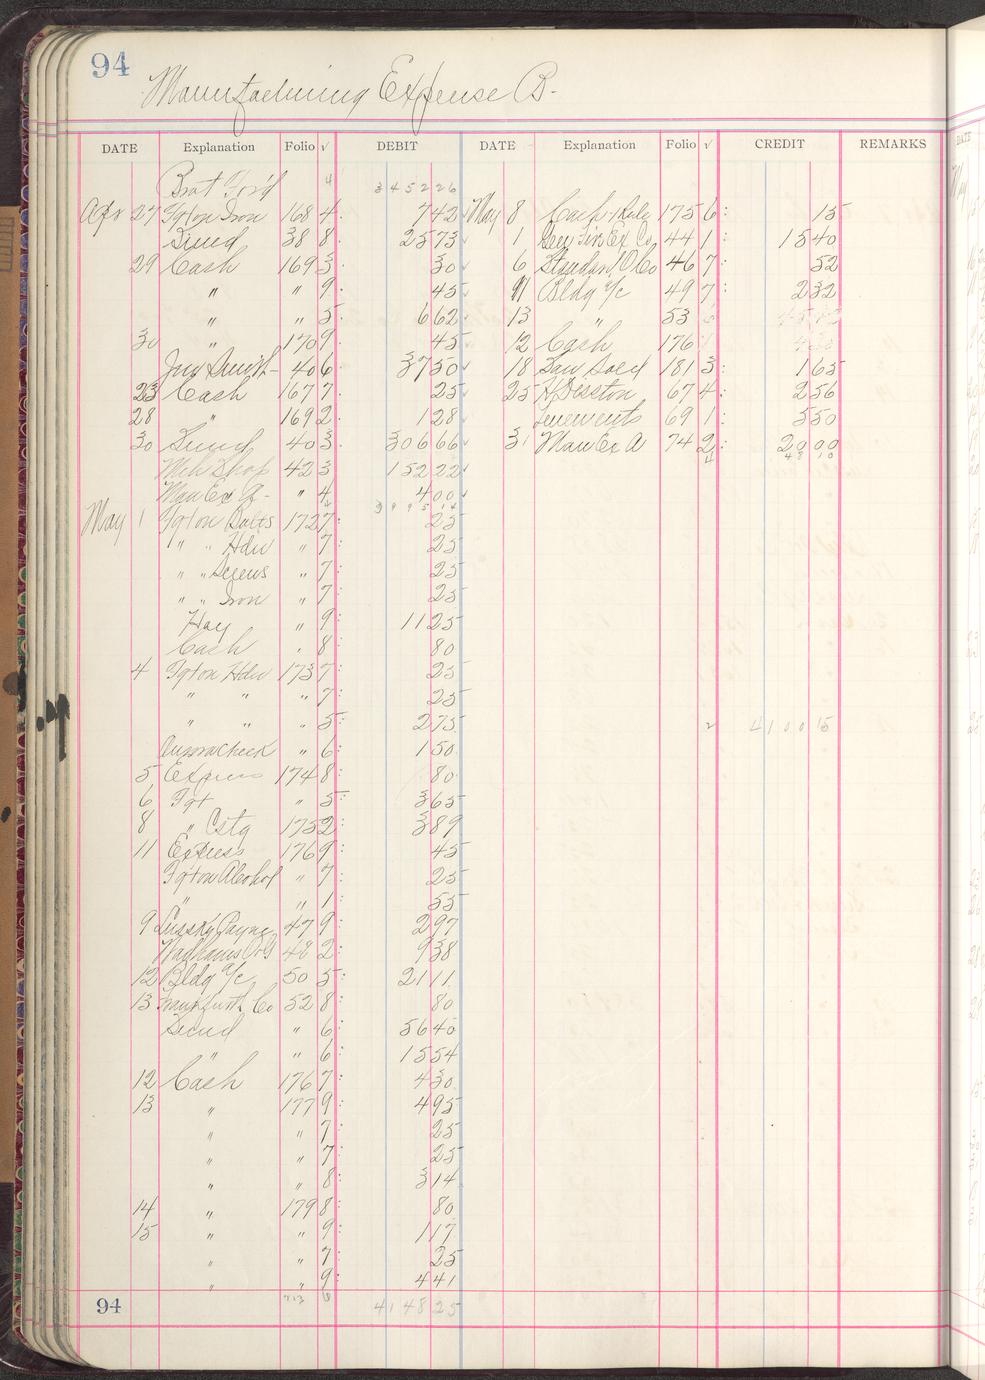 94
Manufacturing Expense B.
DATE Explanation Folio √ DEBIT DATE Explanation Folio √ CREDIT REMARKS
Brot For'd 4 3452 26
Apr 27 Fgt on Iron 168 4 7 42 May 8 Cash 175 6 15
Sund 38 8 25 73 1 Ex Co 44 1 15 40
29 Cash 169 3 30 6 Standard O Co 46 7 52
" " 9 45 11 Bldg a/c 49 7 2 32
" " 5 6 62 13 " 53
30 " 170 9 45 12 Cash 176
Jno Smith 40 6 37 50 18 Saw Sold 181 3 1 65
23 Cash 167 7 25 25 H Disston 67 4 2 56
28 " 169 2 1 28 Tenements 69 1 5 50
30 Sund 40 3 306 66 31 Man Ex A 74 2 20 00
Mch Shop 42 3 152 22 4 48 10
Man Ex A - " 4 4 00
3995 14
May 1 Fgt on Bolts 172 7 25
" " Hdw " 7 25
" " Screws " 7 25
" " Iron " 7 25
Hay " 9 11 25
Cash " 8 80
4 Fgt on Hdw 173 7 25
" " " 7 25
" " " 5 2 75 √ 4100 15
" 6 1 50
5 Express 174 8 80
6 Fgt " 5 3 65
8 " Cstg 175 2 3 89
11 Express 176 9 45
Fgt on Alcohol " 7 25
" " 1 55
9 47 9 2 97
Wadhams O 48 2 9 38
12 Bldg a/c 50 5 21 11
13 Frankfurth Co 52 8 80
Sund " 6 56 40
" " 6 15 54
12 Cash 176 7 4 30
13 " 177 9 4 95
" " 7 25
" " 7 25
" " 8 3 14
14 " 179 8 80
15 " " 9 1 17
" " 7 25
" " 9 4 41
94 4148 25